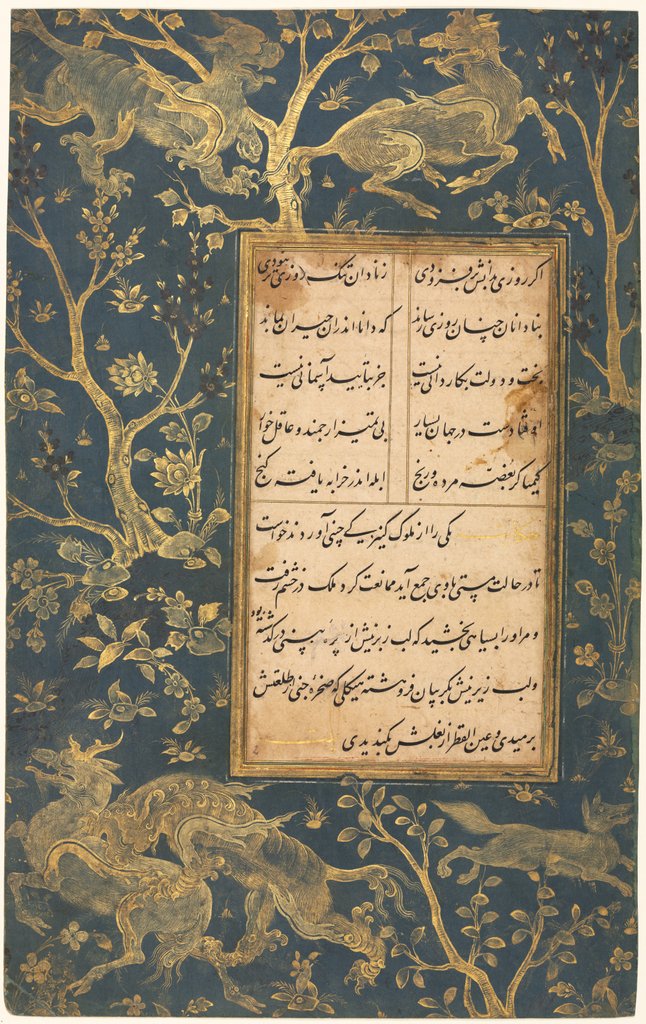 اگر روزی بدانش بر فزودی ز نادان تنگ روزی تر نبودی
بنادانان چنان روزی رساند که دانا اندران حیران بماند
بخت و دولت بکاردانی نیست جز بتایید آسمانی نیست
اوفتادست در جهان بسیار بی تمیز ارجمند و عاقل خوار
کیمیاگر بغصه مرده و رنج ابله اندر خرابه یافته گنج
حکایت یکی را از ملوک کنیزکی چینی آوردند خواست
تا در حالت مستی با وی جمع آید ممانعت کرد ملک در خشم رفت
و مر او را بسیاهی بخشید که لب زبرینش از پره بینی درگذشته بود
و لب زیرینش بگریبان فروهشته هیکلی که صخره جنی از طلعتش
برمیدی و عین القطر از بغلش بگندیدی